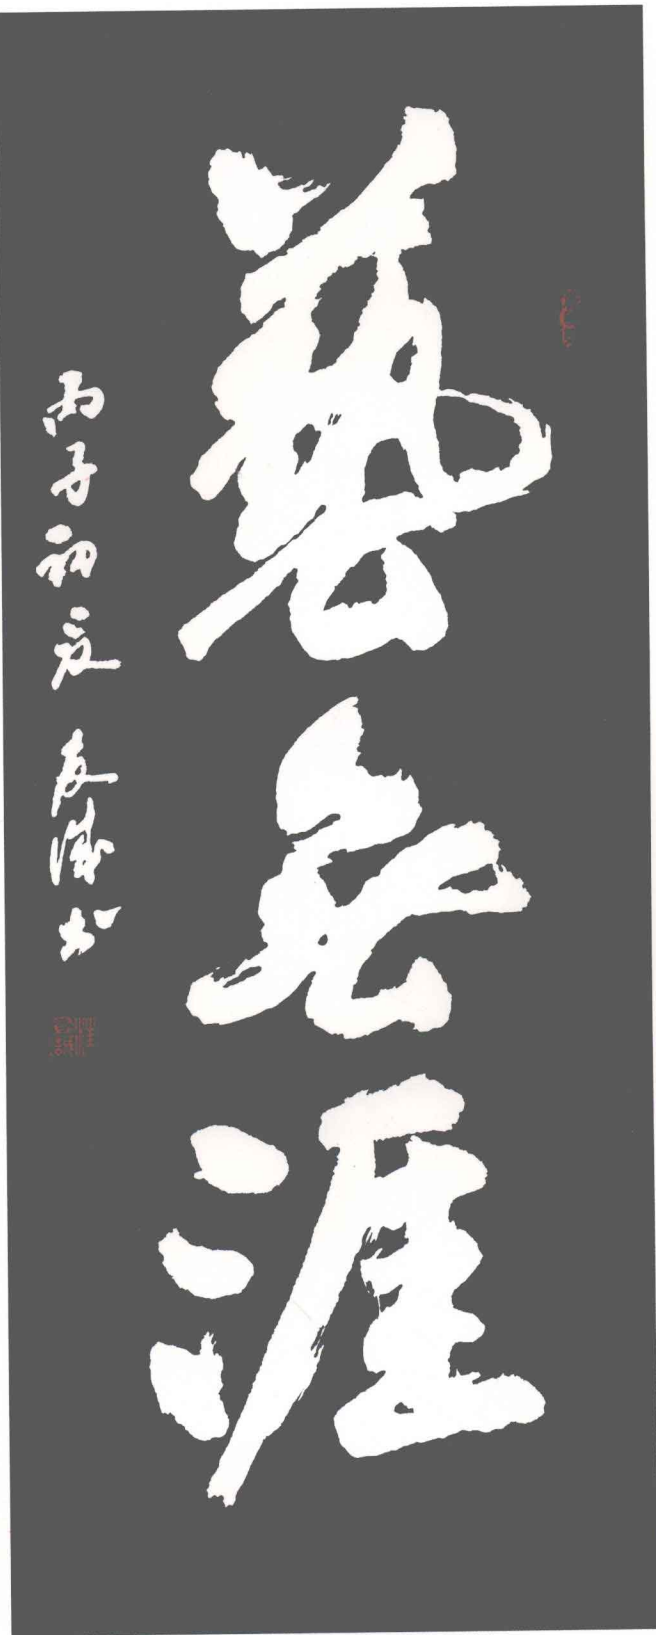 藝無涯
丙子初夏 友誠書